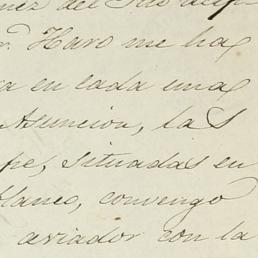 nez del Rio
r. Haro me ha
a en cada una
Asuncion, las
pe, situadas en
blanco, convengo
aviador con la